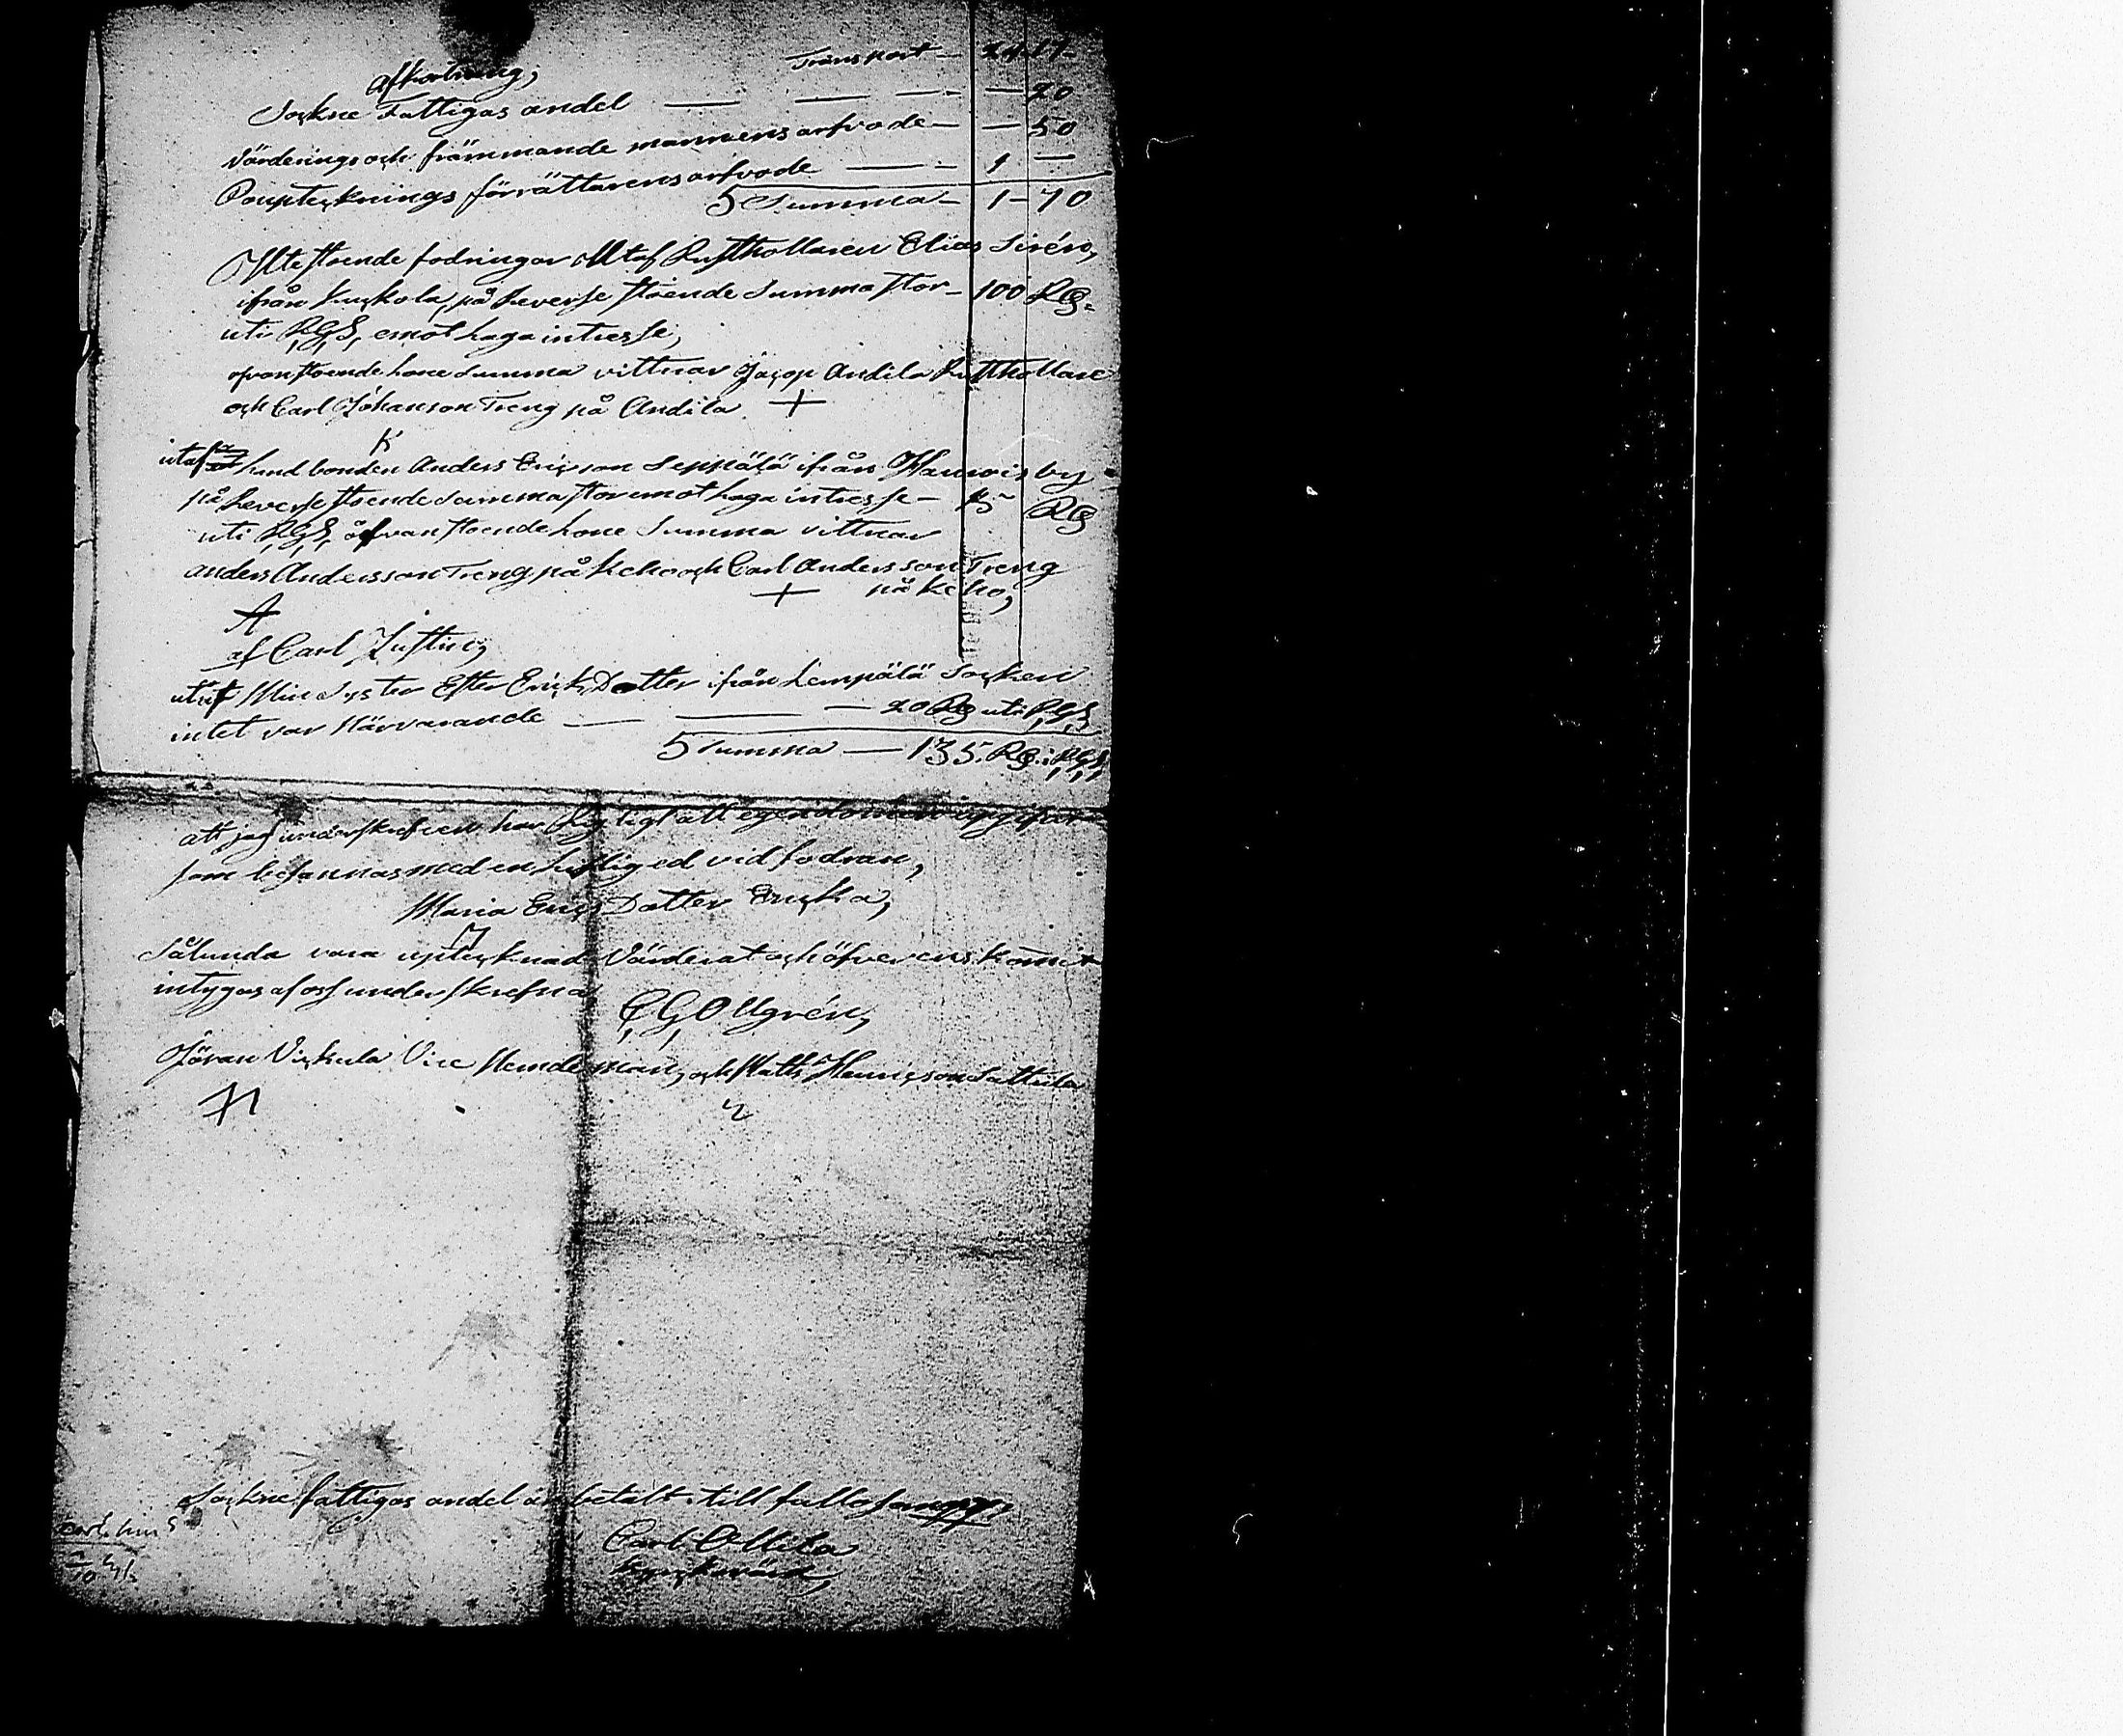 Transport — 24 17
afkortning,
Sockne Fattigas andel — — — — 20
Värderings och främmande mannens arfvode — — 50
Pouptecknings förrättarens arfvode — 1 —
5 Summa — 1 — 70
Utestoende fodringar Utaf Rusthollaren Elias Sirén,
ifrån Kuckola, på Reverse stoende Summa stor — 100 Rg
uti R,G,S, emot laga intresse,
ofvanstoende lone Summa vittnar Jacop Andila Rusthollare
och Carl Johanson Treng på Andila +
K
utaf land bonden Anders Ericson Seppälä ifrån by
på Reverse stoende Summa stor emot laga intresse — 15 Rg
uti R,G,S, ofvan stoende lone Summa vittnar
anders Andersson Treng på Keho och Carl Andersson Treng
+ på Keho,
A
af Carl
utaf Min Syster Ester Erick Dotter ifrån Lempälä Socken
intet var Närvarande — — — 20 Rg uti R,G,S
5 Summa — 135. Rg. i R,G,S,
att jag underskrefven har Rigtigt all egendomen uppgifvit
som befannas med en Liflig ed vid fodran,
Maria Erics Dotter Ericka,
M
Sålunda vara uptecknad Värderat och öfverenskomit
intygas af oss underskrefna
C,G,Ollgrén,
Jöran Vickula Vice Nemdeman, och Matts Henricson Sattila
Sockne fattigas andel är betalt till fullo
Carl Ollila
Kyrckovärd,